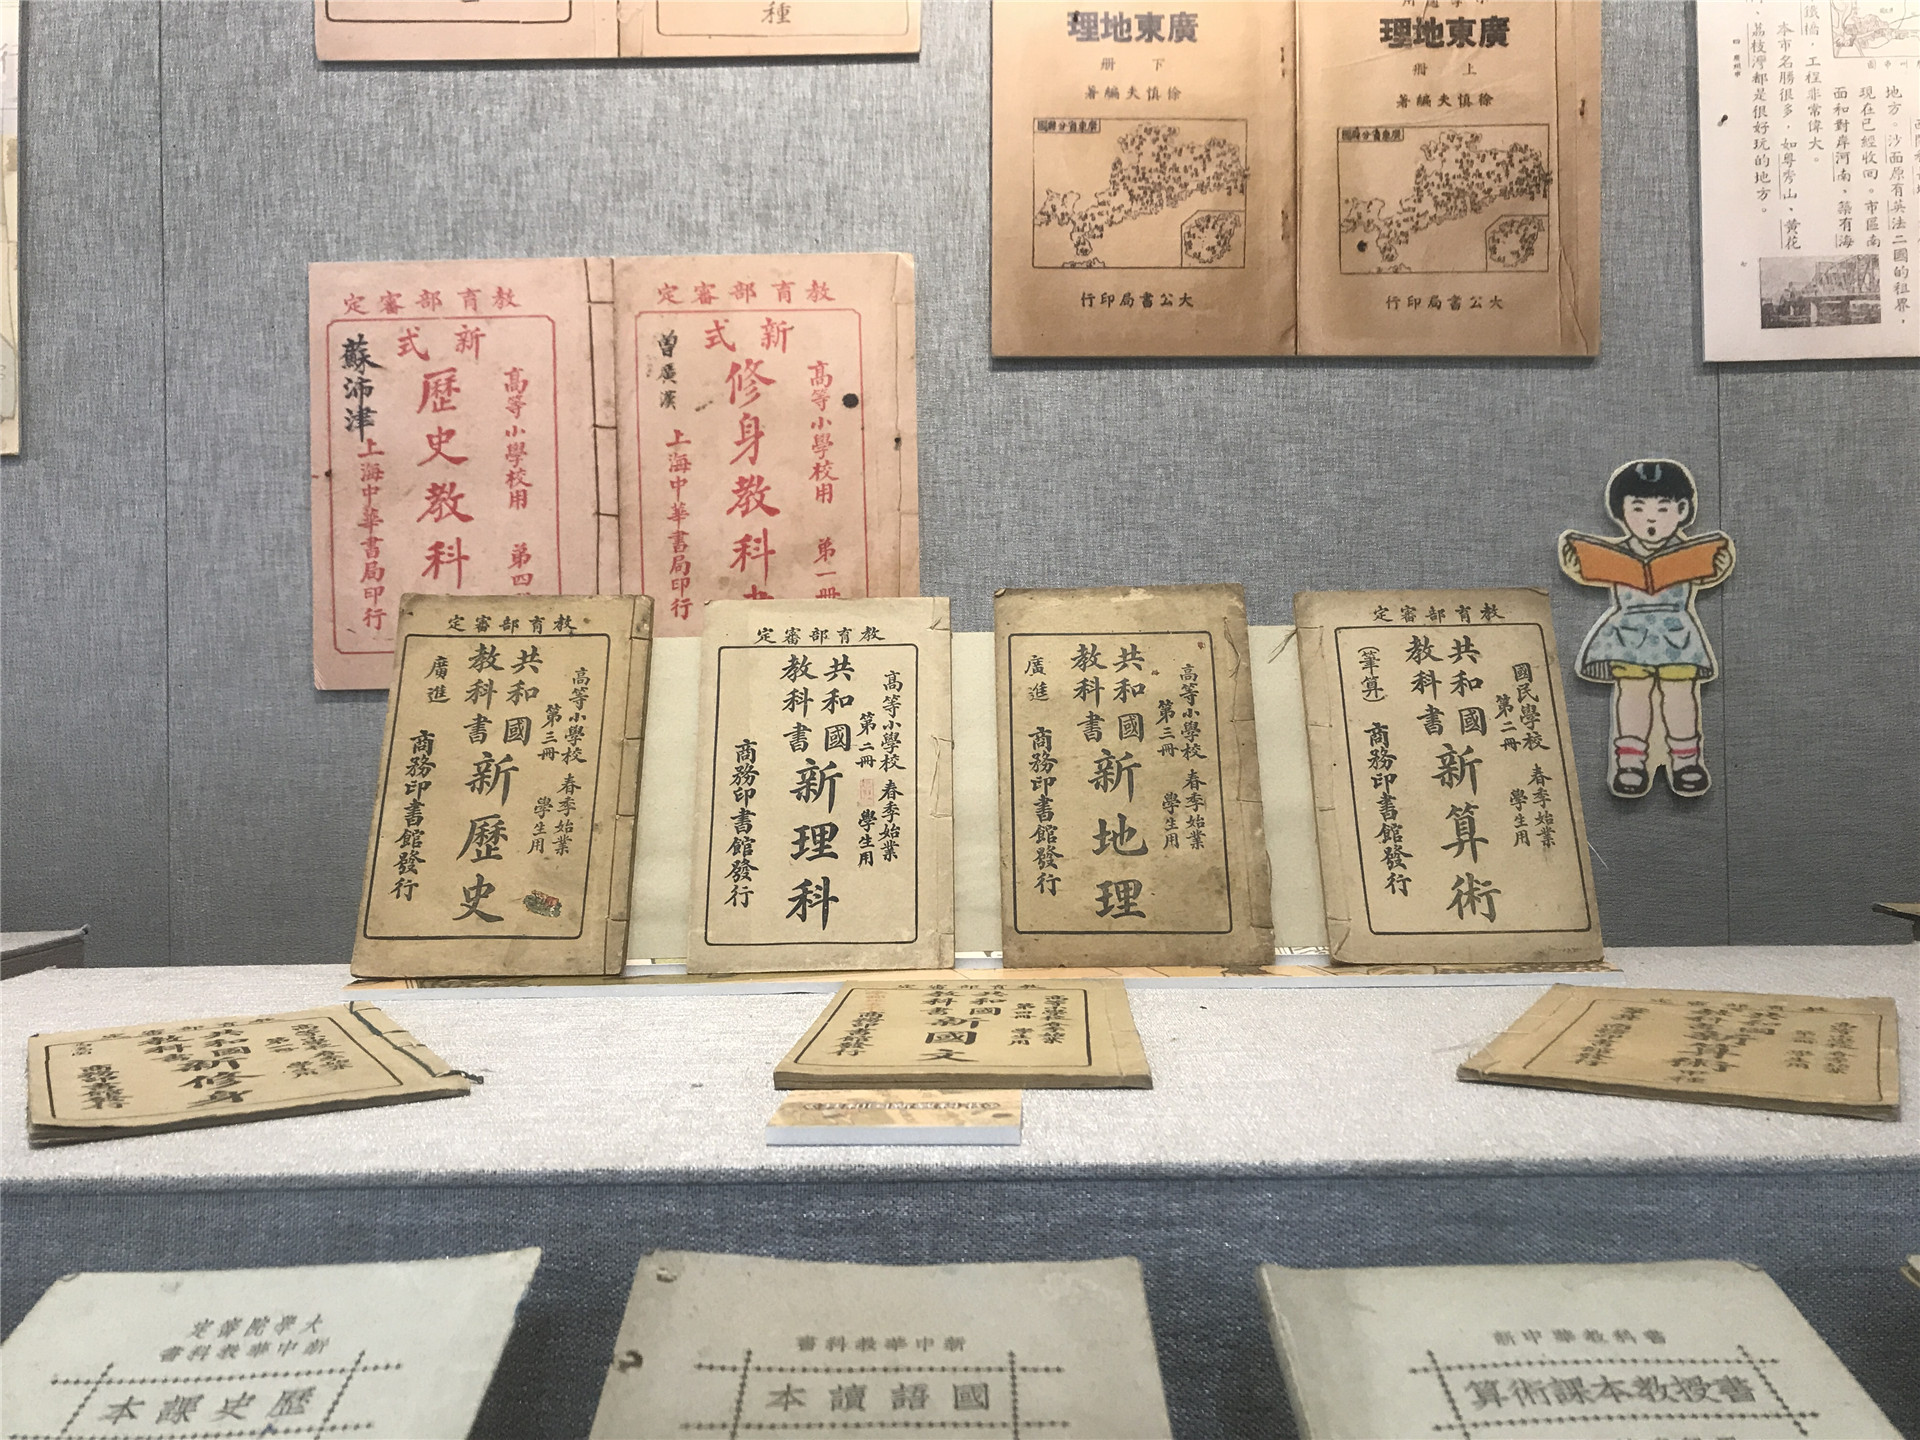 種
廣東地理
下冊
徐慎夫編著
廣東省分縣圖
大公書局印行
廣東地理
上冊
徐慎夫編著
廣東省分縣圖
大公書局印行
鐵橋，工程非常偉大。
本市名勝很多，如粵秀山、黃花
荔枝灣都是很好玩的地方。
四 廣州市
地方。沙面原有英法二國的租界，
現在已經收回。市區南
面和對岸河南，築有海
教育部審定
新式
高等小學校用 第四
歷史教科
蘇沛津
上海中華書局印行
教育部審定
新式
高等小學校用 第一冊
修身教科書
曾廣漢
上海中華書局印行
教育部審定
高等小學校 春季始業
第三冊 學生用
共和國
教科書
新歷史
廣進
商務印書館發行
教育部審定
高等小學校 春季始業
第二冊 學生用
共和國
教科書
新理科
商務印書館發行
高等小學校 春季始業
第三冊 學生用
共和國
教科書
新地理
廣進
商務印書館發行
教育部審定
國民學校 春季始業
第二冊 學生用
共和國
教科書
新算術
（筆算）
商務印書館發行
教育部審定
共和國
教科書
新修身
學生用
商務印書館發行
教育部審定
共和國
教科書
新國文
第四冊 學生用
商務印書館發行
共和國
學生用
大學院審定
新中華教科書
歷史課本
新中華教科書
國語讀本
新中華教科書
算術課本教授書